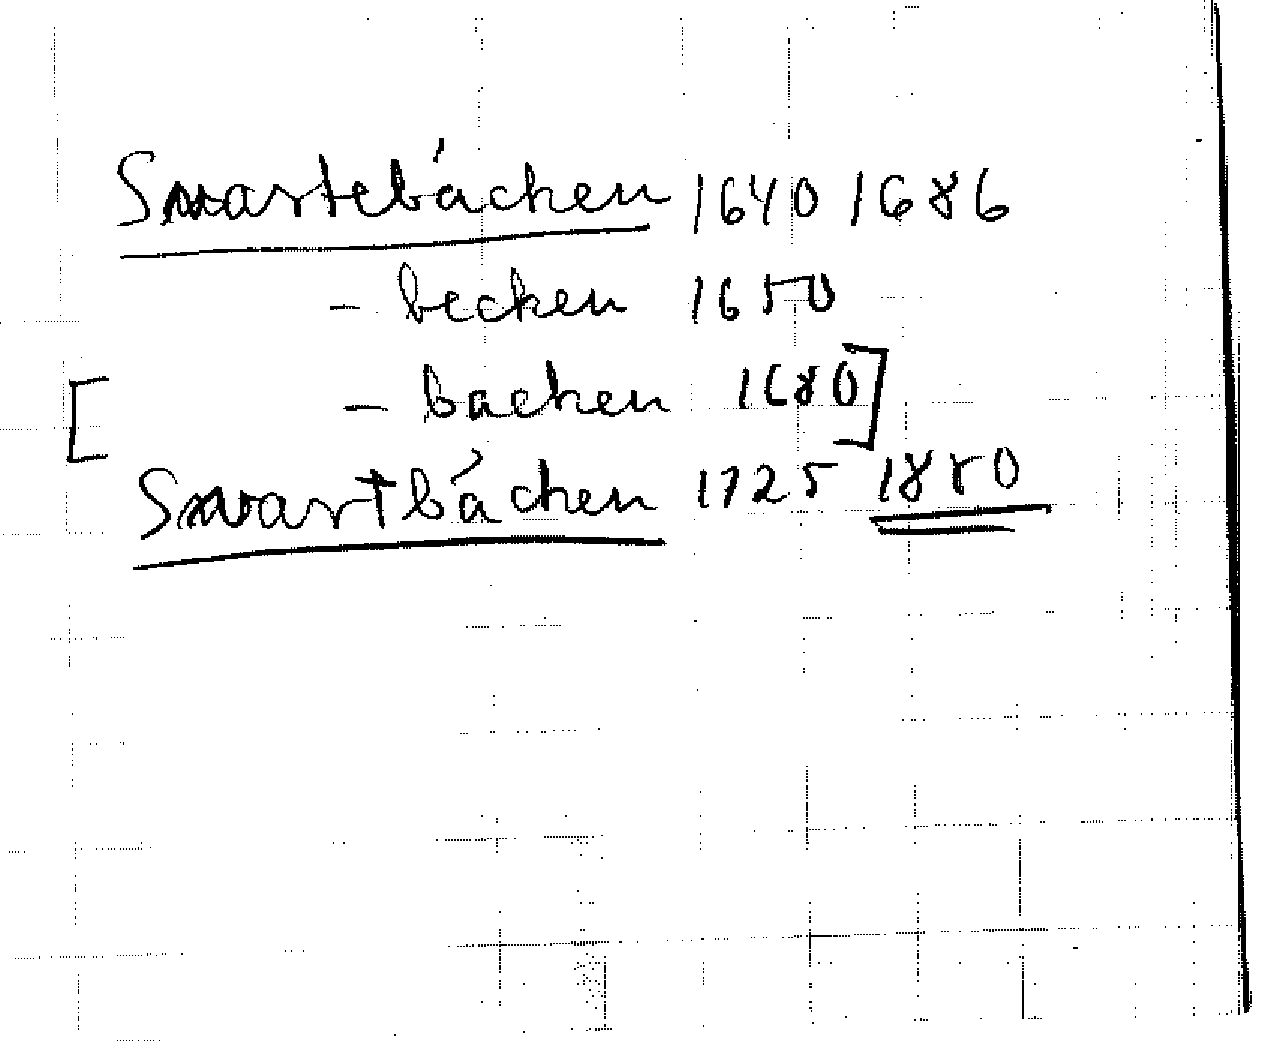 Swartebácken 1640 1686
- becken 1650
[ - backen 1680 ]
Swartbácken 1725 1880